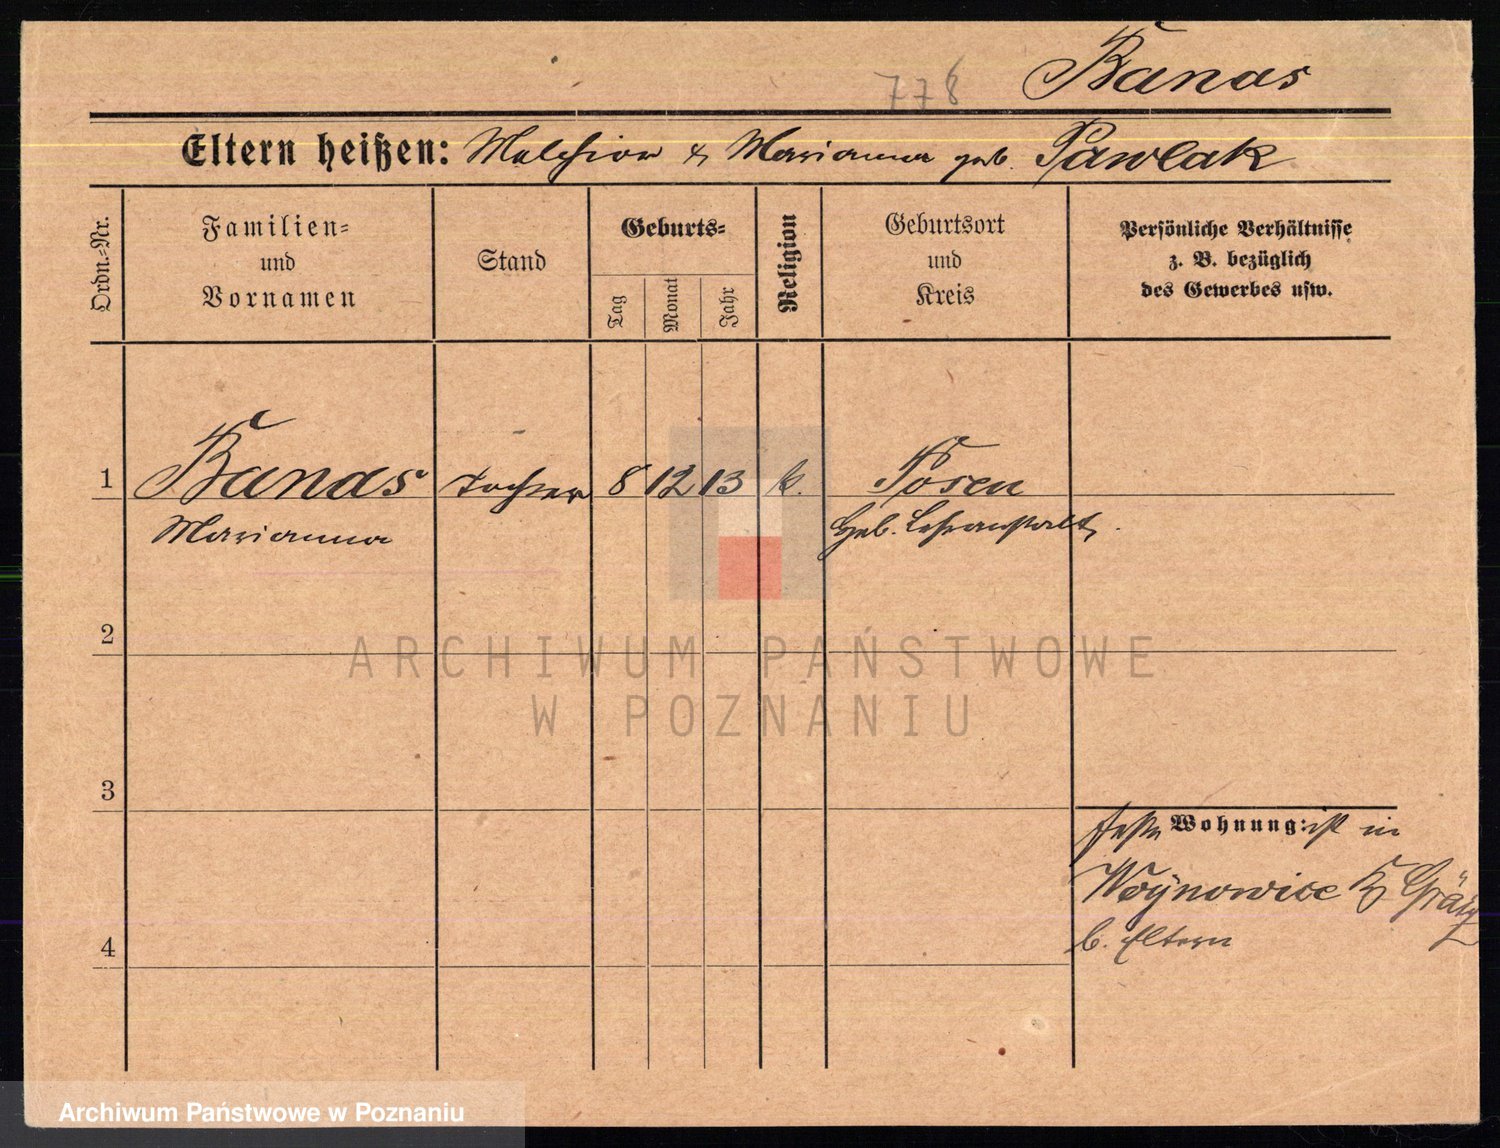 778 Banas
Eltern heißen: Melchior & Marianna geb. Pawlak
Ordn.-Nr.
Familien-
und
Vornamen
Stand
Geburts-
Tag
Monat
Jahr
Religion
Geburtsort
und
Kreis
Persönliche Verhältnisse
z. B. bezüglich
des Gewerbes usw.
1 Banas Tochter 8 12 13 k. Posen
Marianna Geb. Lehranstalt.
2
ARCHIWUM PAŃSTWOWE
W POZNANIU
3
feste Wohnung: ist in
Woynowice K Grätz
b. Eltern
4
Archiwum Państwowe w Poznaniu